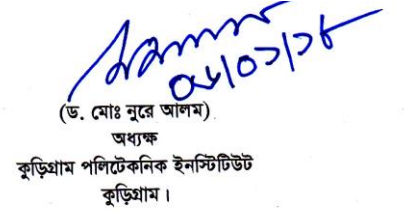 (ড. মোঃ নুরে আলম)
অধ্যক্ষ
কুড়িগ্রাম পলিটেকনিক ইনস্টিটিউট
কুড়িগ্রাম।